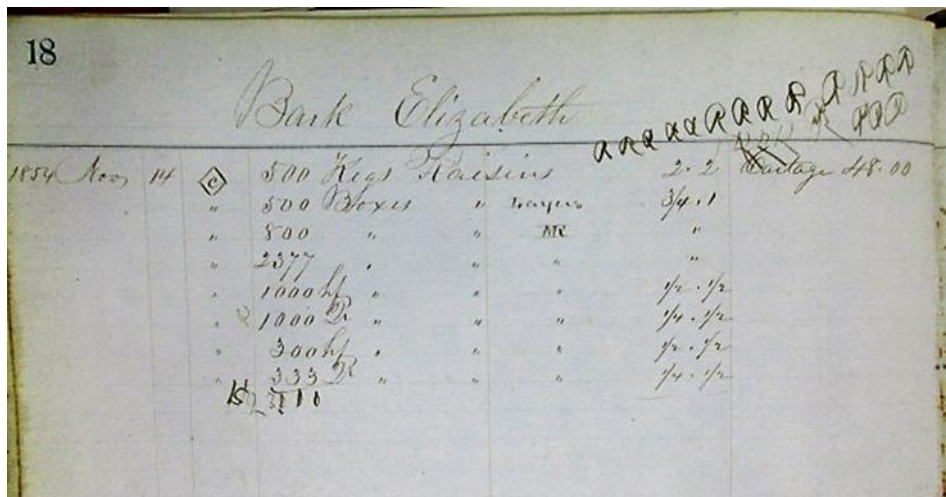 18
Bark Elizabeth
1854 Nov 14 C 500 Kegs Raisins 2.2 Cartage 48.00
" 500 Boxes " Layers 3/4.1
" 800 " " MR "
" 2377 " " " "
" 1000 hf " " " 1/2.1/2
" 1000 Qr " " " 1/4.1/2
" 300 hf " " " 1/2.1/2
" 333 Qr " " " 1/4.1/2